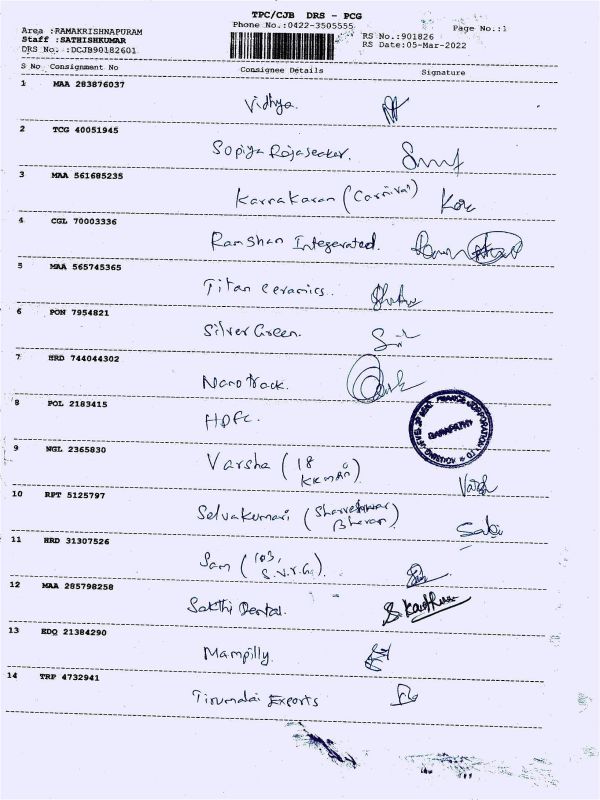 TPC/CJB DRS - PCG
Phone No.:0422-3505555
Page No.:1
Area :RAMAKRISHNAPURAM
Staff :SATHISHKUMAR
DRS No. :DCJB90182601
RS No.:901826
RS Date:05-Mar-2022
S No Consignment No Consignee Details Signature
1 MAA 283876037
Vidhya.
2 TCG 40051945
Sopiya Rajaseaker.
3 MAA 561685235
Karnakaran (Carnival)
4 CGL 70003336
Ramshan Integerated.
5 MAA 565745365
Titan Ceramics.
6 PON 7954821
Silver Green.
7 HRD 744044302
Nano Track.
8 POL 2183415
HDFC.
HOUSING DEVELOPMENT FINANCE CORPORATION LTD
GANAPATHY
9 NGL 2365830
Varsha (18
KKMAN)
Varsh
10 RPT 5125797
Selvakumari (Sharveshwar
Bhavan)
11 HRD 31307526
Sam (103,
S.V.R.G.)
12 MAA 285798258
Sakthi Dental.
13 EDQ 21384290
Mampilly.
14 TRP 4732941
Tirumalai Exports